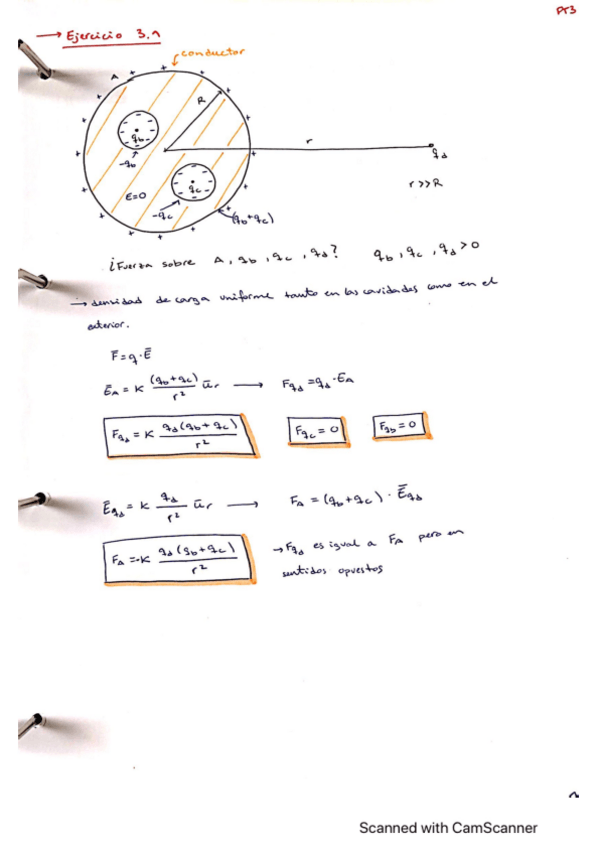 PT3
→ Ejercicio 3.1
conductor
A
R
q_b
-q_b
r
q_d
r>>R
q_c
E=0
-q_c
(q_b+q_c)
¿Fuerza sobre A, q_b, q_c, q_d? q_b, q_c, q_d > 0
→ densidad de carga uniforme tanto en las cavidades como en el
exterior.
F̄=q·Ē
Ē_A = K (q_b+q_c)/r² ū_r → F_qd = q_d·Ē_A
F_qd = K q_d(q_b+q_c)/r² F_qc = 0 F_qb = 0
Ē_qd = K q_d/r² ū_r → F_A = (q_b+q_c)·Ē_qd
F_A = -K q_d(q_b+q_c)/r² → F_qd es igual a F_A pero en
sentidos opuestos
Scanned with CamScanner